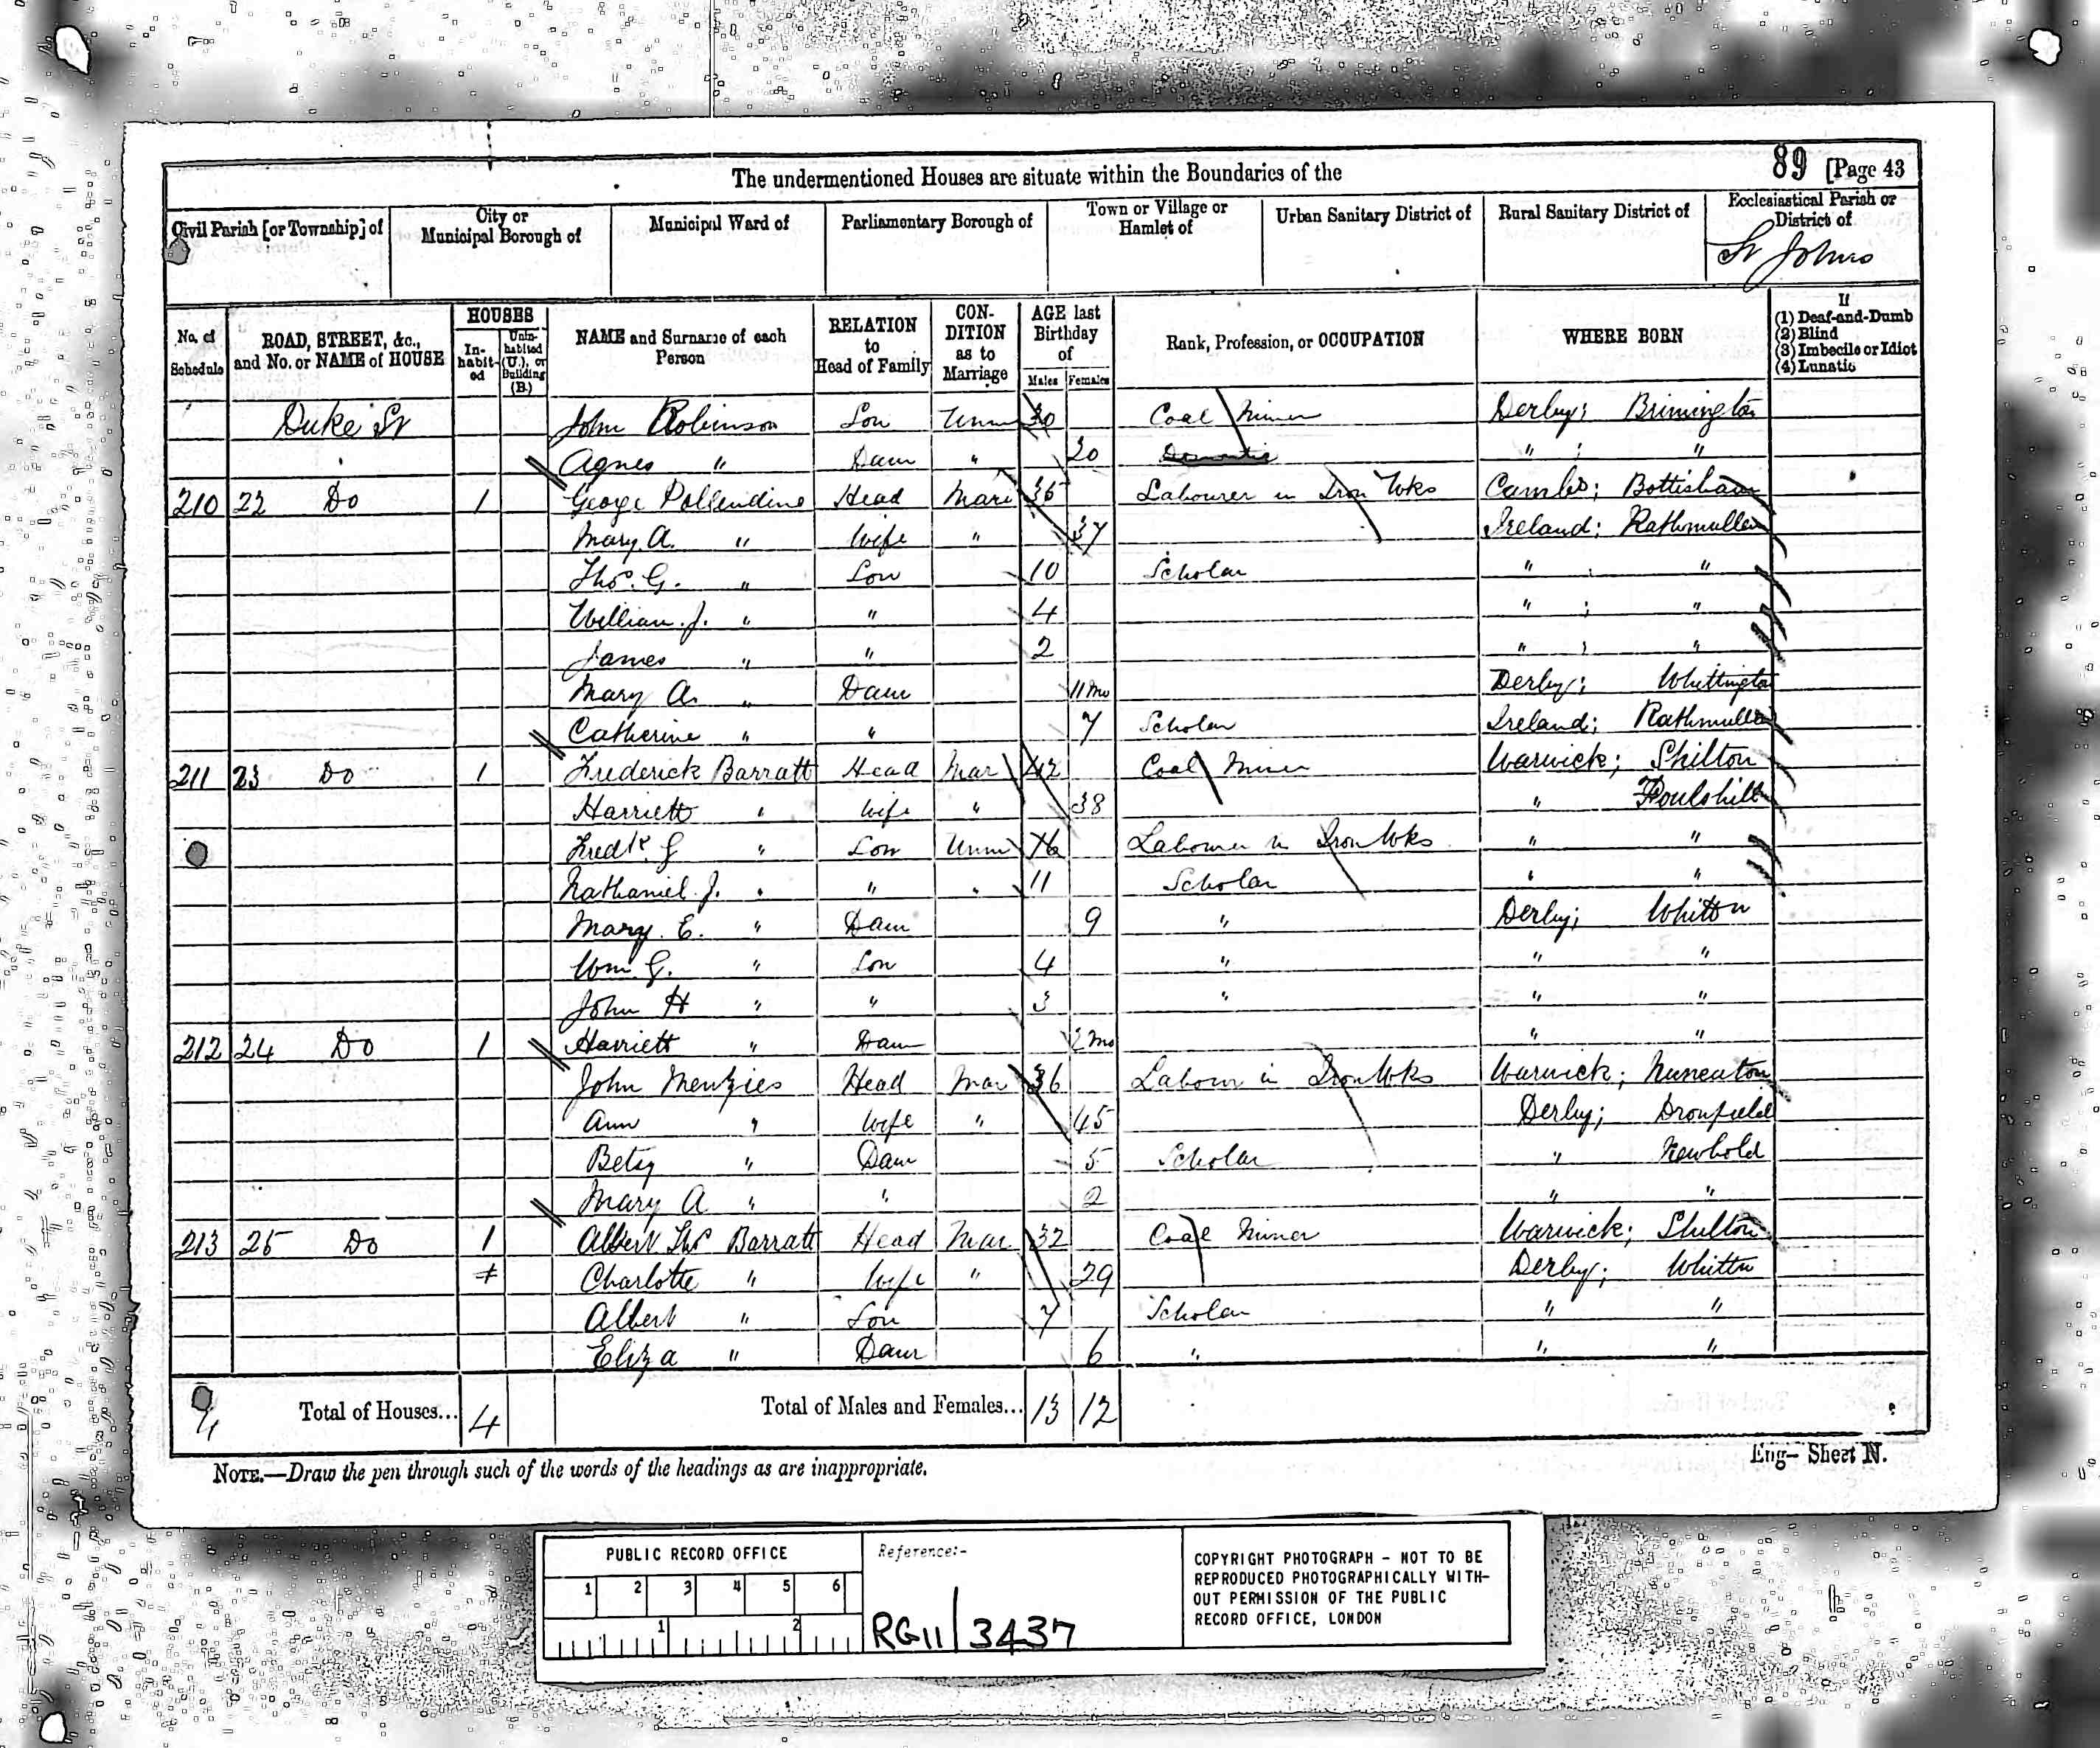 89 [Page 43
The undermentioned Houses are situate within the Boundaries of the
Civil Parish [or Township] of | City or Municipal Borough of | Municipal Ward of | Parliamentary Borough of | Town or Village or Hamlet of | Urban Sanitary District of | Rural Sanitary District of | Ecclesiastical Parish or District of
St Johns
No. of Schedule | ROAD, STREET, &c., and No. or NAME of HOUSE | HOUSES In-habit-ed | Unin-habited (U.), or Building (B.) | NAME and Surname of each Person | RELATION to Head of Family | CON-DITION as to Marriage | AGE last Birthday of Males | Females | Rank, Profession, or OCCUPATION | WHERE BORN | If (1) Deaf-and-Dumb (2) Blind (3) Imbecile or Idiot (4) Lunatic
Duke St John Robinson Son Unm 30 Coal Miner Derby; Brimington
Agnes " Daur " 20 Domestic " ; "
210 22 Do 1 George Pollendine Head Mar 36 Labourer in Iron Wks Cambs; Bottisham
Mary A. " Wife " 37 Ireland; Rathmullen
Thos. G. " Son 10 Scholar " ; "
William J. " " 4 " ; "
James " " 2 " ; "
Mary A. " Daur 11 mo Derby; Whittington
Catherine " " 7 Scholar Ireland; Rathmullen
211 23 Do 1 Frederick Barratt Head Mar 42 Coal Miner Warwick; Shilton
Harriett " Wife " 38 " Foulshill
Fredk. G " Son Unm 16 Labourer in Iron Wks " "
Nathaniel J. " " " 11 Scholar " "
Mary. E. " Daur 9 " Derby; Whitton
Wm G. " Son 4 " " "
John H " " 3 " " "
212 24 Do 1 Harriett " Daur 2 mo " "
John Menzies Head Mar 36 Labour in Iron Wks Warwick; Nuneaton
Ann " Wife " 45 Derby; Dronfield
Betsy " Daur 5 Scholar " Newbold
Mary A " " 2 " "
213 25 Do 1 Albert Thos Barratt Head Mar 32 Coal Miner Warwick; Shilton
Charlotte " Wife " 29 Derby; Whitton
Albert " Son 7 Scholar " "
Eliza " Daur 6 " " "
4 Total of Houses... 4 Total of Males and Females... 13 12
NOTE.—Draw the pen through such of the words of the headings as are inappropriate.
Eng— Sheet N.
PUBLIC RECORD OFFICE
1 2 3 4 5 6
1 2
Reference:-
RG11/3437
COPYRIGHT PHOTOGRAPH - NOT TO BE
REPRODUCED PHOTOGRAPHICALLY WITH-
OUT PERMISSION OF THE PUBLIC
RECORD OFFICE, LONDON